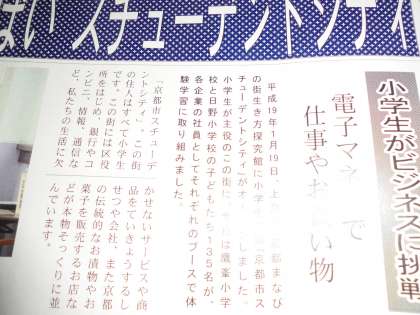 まい スチューデントシティ
小学生がビジネスに挑戦
電子マネ で
仕事やお い物
平成19年1月19日、上
の街生き方探究館に小学
チューデントシティ」がオ しました。
小学生が主役のこの街に は鷹峯小学
校と日野小学校の子どもたち135名が、
各企業の社員としてそれぞれのブースで体
験学習に取り組みました。
「京都市スチューデ
ントシティ」、この街
の住人はすべて小学生
です。この街には区役
所をはじめ、銀行やコ
ンビニ、情報、通信な
ど、私たちの生活に欠
かせないサービスや商
品をていきょうするし
せつや会社、また京都
の伝統的なお漬物やお
菓子を販売するお店な
どが本物そっくりに並
んでいます。